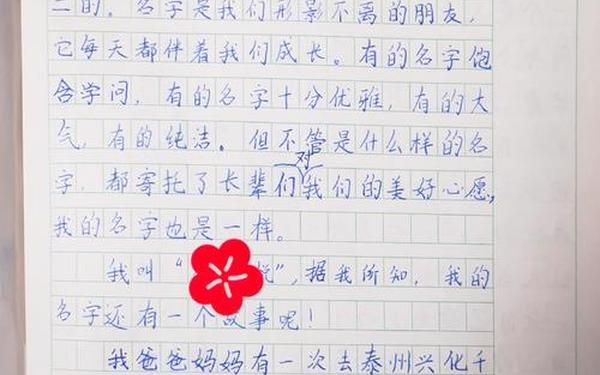 二的。名字是我们形影不离的朋友，
它每天都伴着我们成长。有的名字饱
含学问，有的名字十分优雅，有的大
气，有的纯洁。但不管是什么样的名
字，都寄托了长辈们对我们的美好心愿，
我的名字也是一样。
我叫“悦”，据我所知，我的
名字还有一个故事呢！
我爸爸妈妈有一次去泰州兴化千